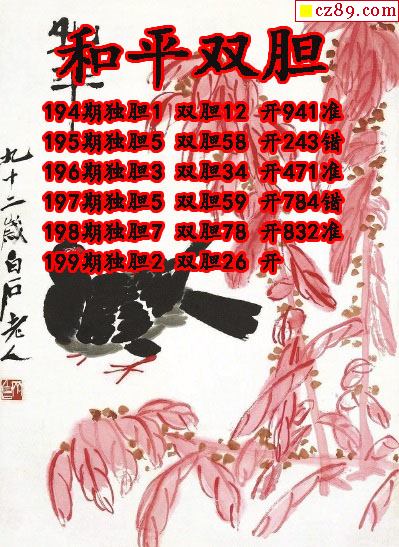 cz89.com
和平双胆
194期独胆1 双胆12 开941准
195期独胆5 双胆58 开243错
196期独胆3 双胆34 开471准
197期独胆5 双胆59 开784错
198期独胆7 双胆78 开832准
199期独胆2 双胆26 开
九十二岁白石老人